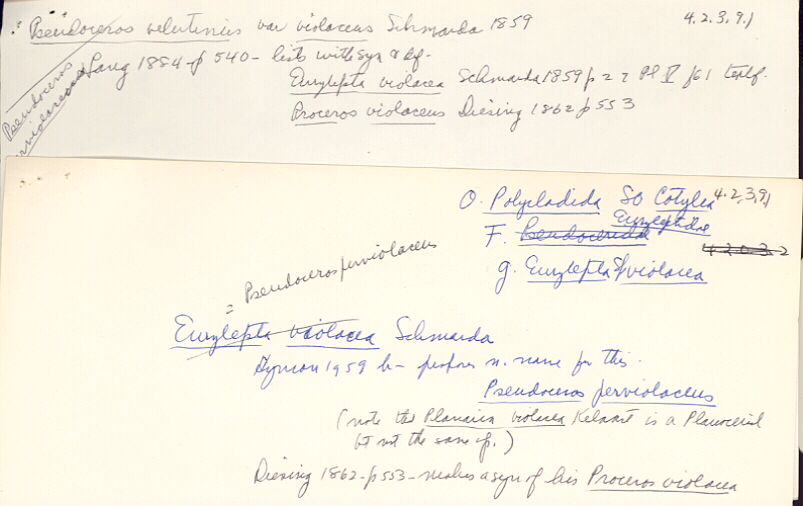 Pseudoceros velutinus var violaceus Schmarda 1859
4.2.3.9.1
Pseudoceros
perviolaceus
Lang 1884 - p 540 - lists with syn & df.
Eurylepta violacea Schmarda 1859 p 27 Pl V f 61 textf.
Proceros violaceus Diesing 1862 p 553
O. Polycladida SO Cotylea 4.2.3.9.1
F. Pseudocerida Euryleptidae
4 2 0 3.2
g. Eurylepta Sp violacea
= Pseudoceros perviolaceus
Eurylepta violacea Schmarda
Hyman 1959 b - proposes n. name for this.
Pseudoceros perviolaceus
(note that Planaria violacea Kelaart is a Planocerid
bt not the same sp.)
Diesing 1862 - p 553 - makes a syn of his Proceros violacea